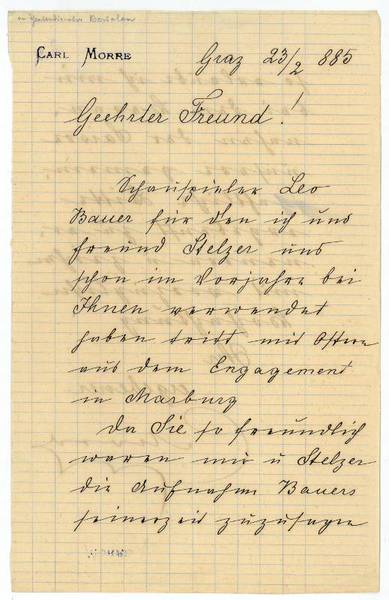 an Theaterdirector Bertalan
CARL MORRE
Graz 23/2 885
Geehrter Freund!
Schauspieler Leo
Bauer für den ich und
Freund Stelzer uns
schon im Vorjahre bei
Ihnen verwendet
haben tritt mit Ostern
aus dem Engagement
in Marburg
Da Sie so freundlich
waren mir u Stelzer
die Aufnahme Bauers
seinerzeit zuzusagen